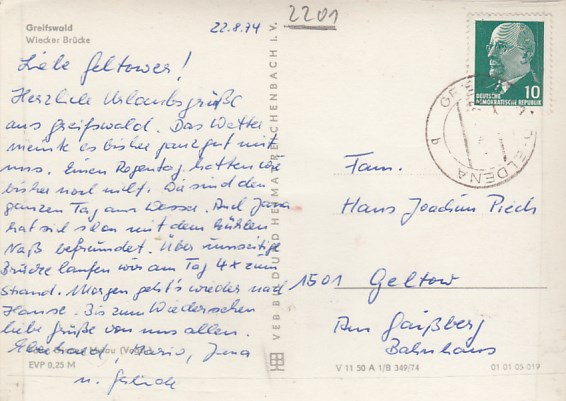 Greifswald
Wiecker Brücke
22.8.74
2201
Liebe Geltower!
Herzliche Urlaubsgrüße
aus Greifswald. Das Wetter
meinte es bisher ganz gut mit
uns. Einen Regentag hatten wir
bisher noch nicht. Wir sind den
ganzen Tag am Wasser. Auch Jana
hat sich schon mit dem kühlen
Naß befreundet. Über umseitige
Brücke laufen wir am Tag 4x zum
Strand. Morgen geht's wieder nach
Hause. Bis zum Wiedersehen
liebe Grüße von uns allen.
Mario, Jana
u. Gerlinde
EVP 0,25 M
VEB BILD UND HEIMAT REICHENBACH I. V.
10
DEUTSCHE
DEMOKRATISCHE REPUBLIK
ELDENA
b
Fam.
Hans Joachim Piech
1501 Geltow
Am Gaißberg
Bahnhaus
V 11 50 A 1/B 349/74
01 01 05 019